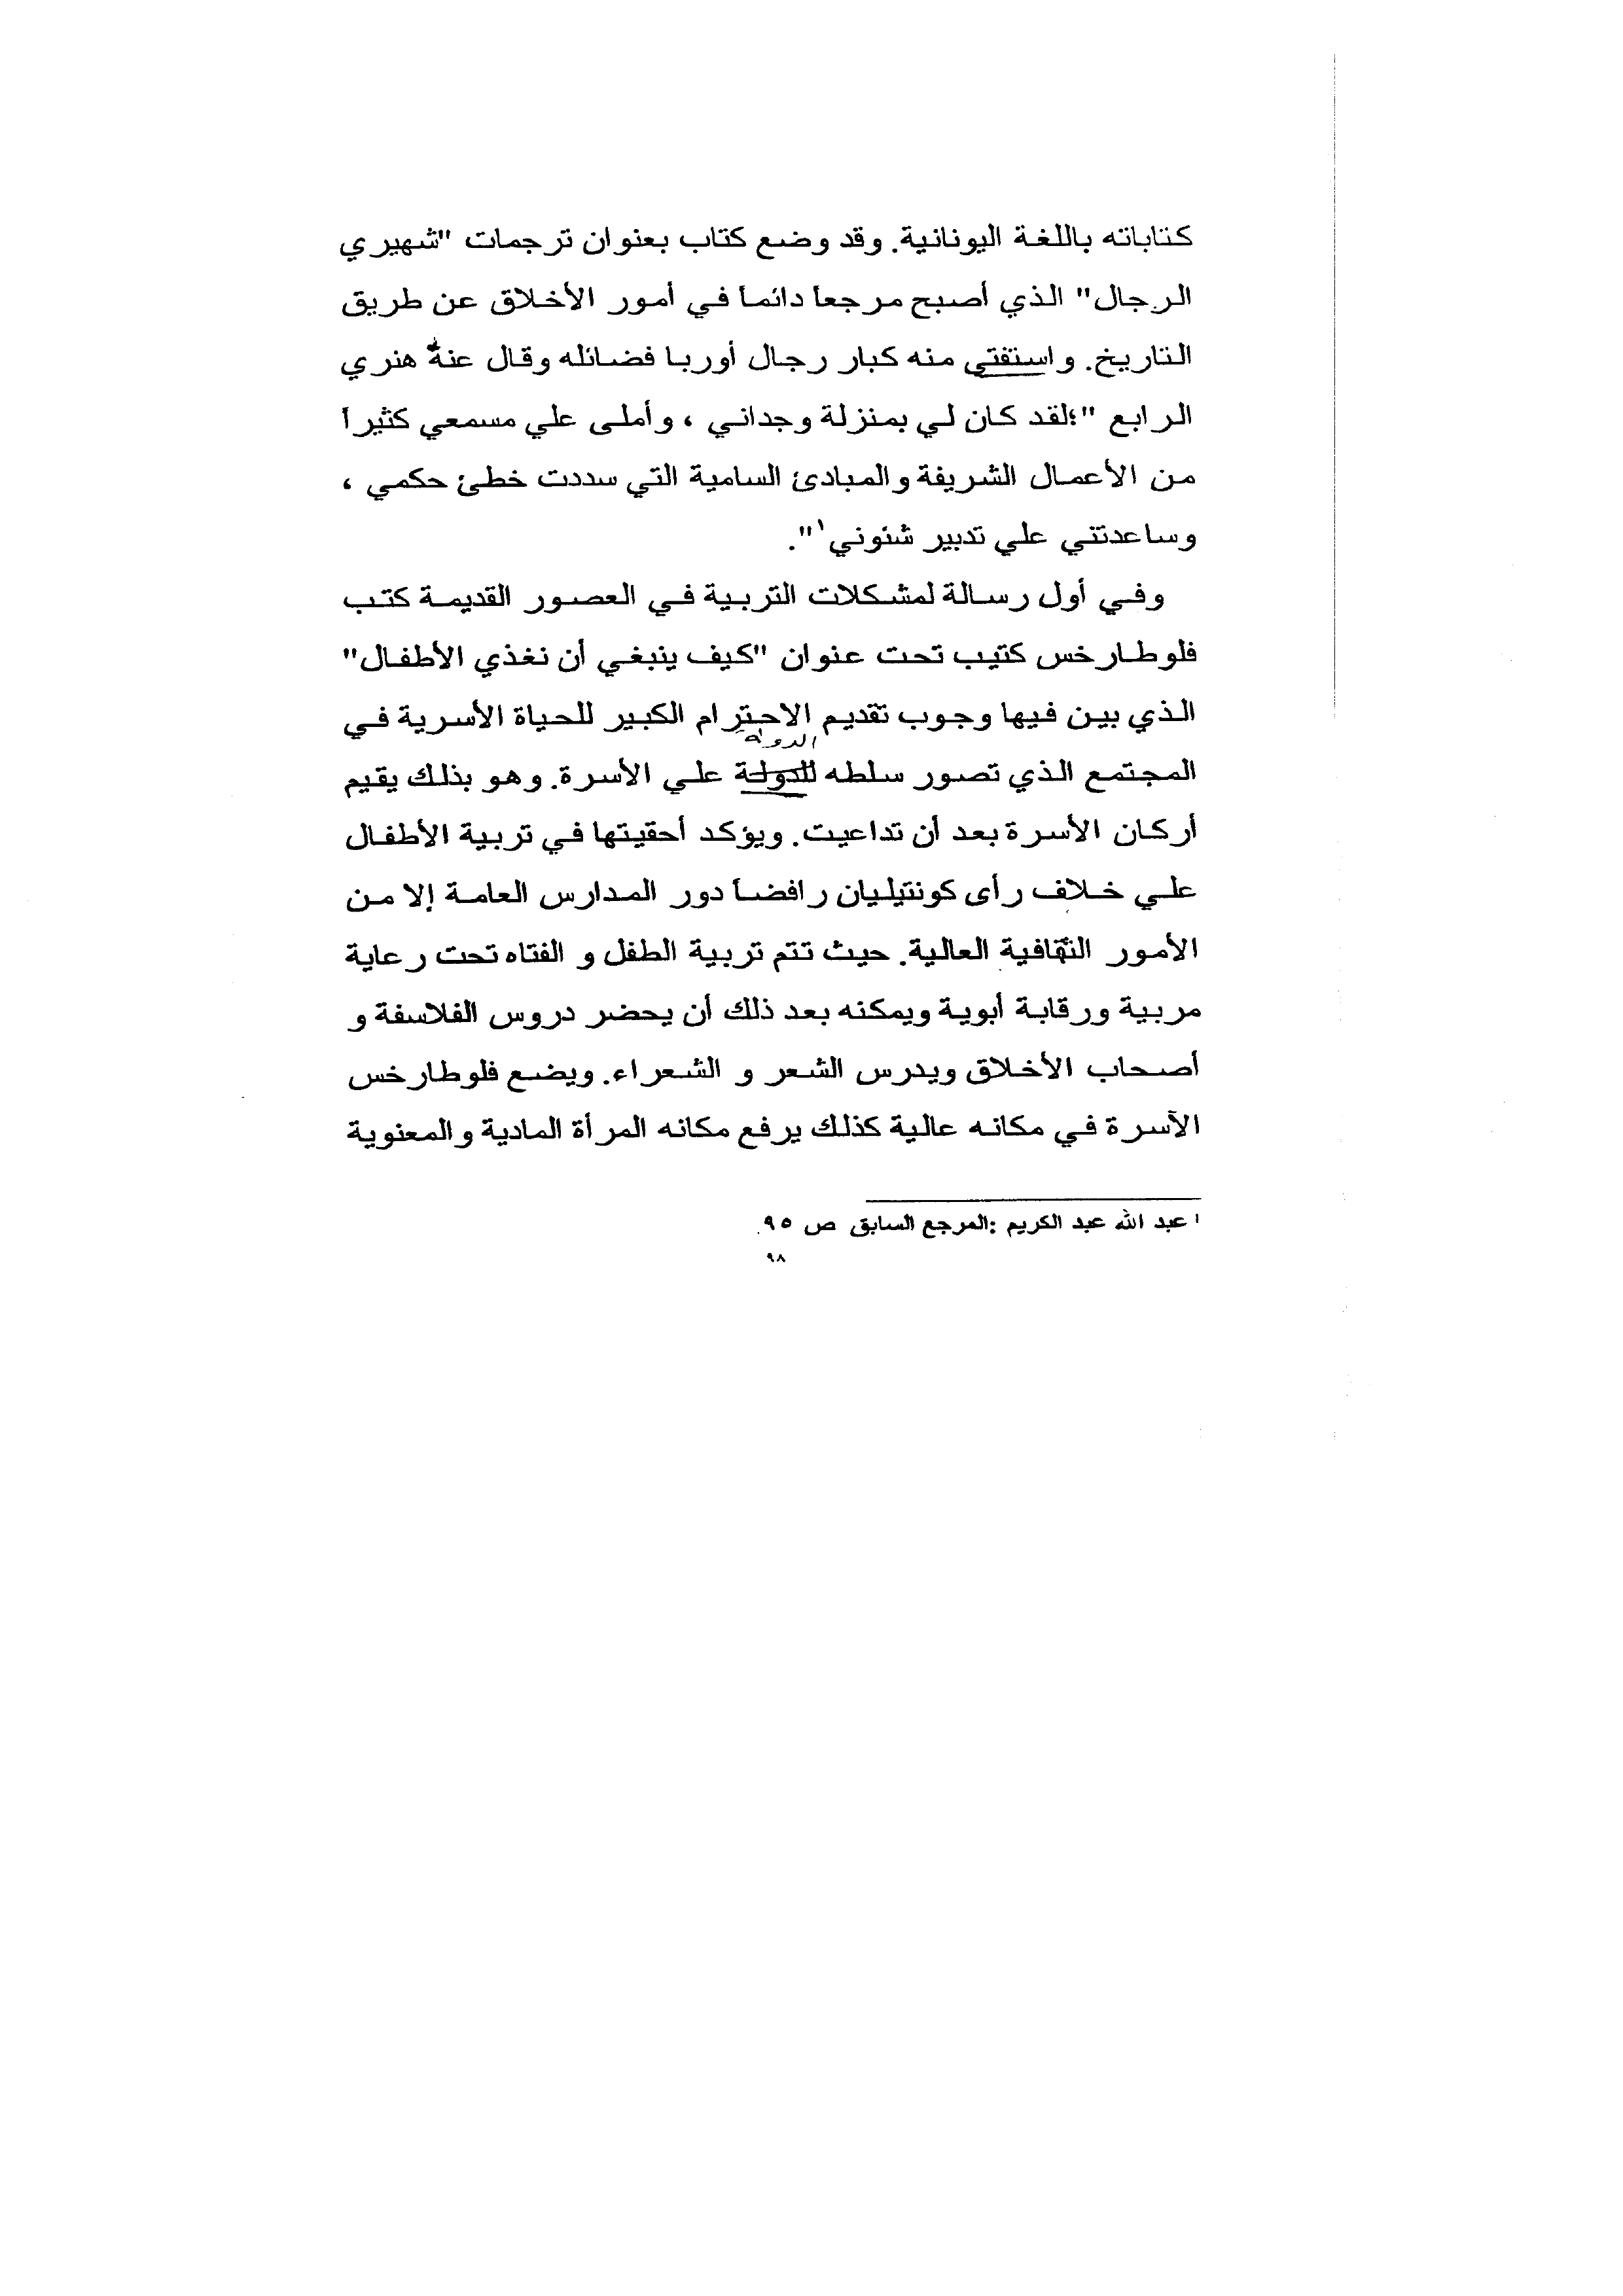 كتاباته باللغة اليونانية. وقد وضع كتاب بعنوان ترجمات "شهيري
الرجال" الذي أصبح مرجعاً دائماً في أمور الأخلاق عن طريق
التاريخ. واستفتي منه كبار رجال أوربا فضائله وقال عنه هنري
الرابع "؛لقد كان لي بمنزلة وجداني ، وأملى علي مسمعي كثيراً
من الأعمال الشريفة والمبادئ السامية التي سددت خطئ حكمي ،
وساعدتني علي تدبير شئوني١".
وفي أول رسالة لمشكلات التربية في العصور القديمة كتب
فلوطارخس كتيب تحت عنوان "كيف ينبغي أن نغذي الأطفال"
الذي بين فيها وجوب تقديم الاحترام الكبير للحياة الأسرية في
الدولة
المجتمع الذي تصور سلطه للدولة علي الأسرة. وهو بذلك يقيم
أركان الأسرة بعد أن تداعيت. ويؤكد أحقيتها في تربية الأطفال
علي خلاف رأى كونتيليان رافضاً دور المدارس العامة إلا من
الأمور الثقافية العالية. حيث تتم تربية الطفل و الفتاه تحت رعاية
مربية ورقابة أبوية ويمكنه بعد ذلك أن يحضر دروس الفلاسفة و
أصحاب الأخلاق ويدرس الشعر و الشعراء. ويضع فلوطارخس
الآسرة في مكانه عالية كذلك يرفع مكانه المرأة المادية والمعنوية
١ عبد الله عبد الكريم :المرجع السابق ص ٩٥.
٩٨